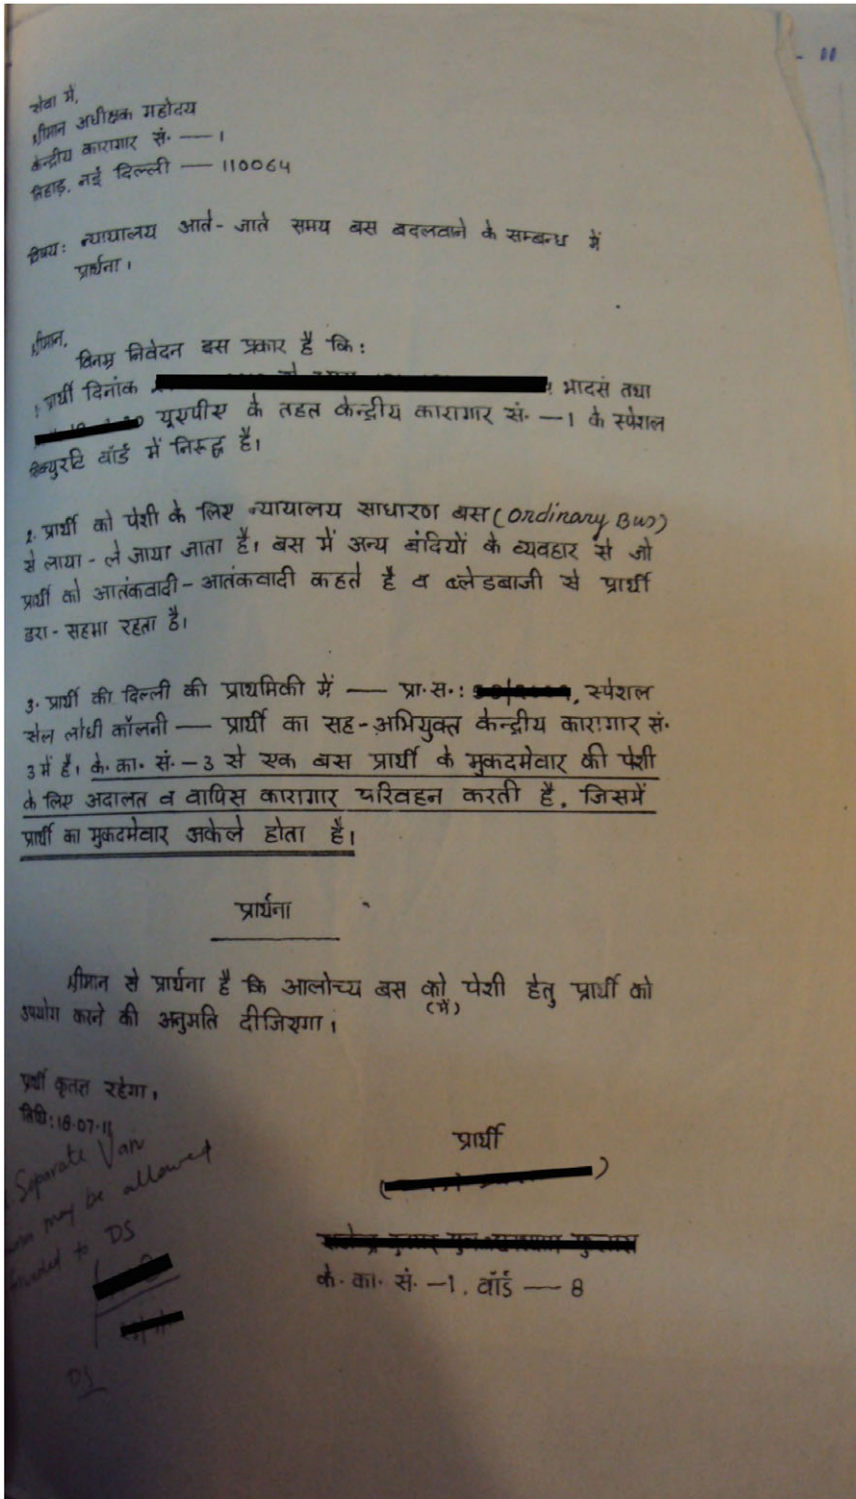 - 11
सेवा में,
श्रीमान अधीक्षक महोदय
केन्द्रीय कारागार सं. — 1
तिहाड़, नई दिल्ली — 110064
विषय: न्यायालय आते-जाते समय बस बदलवाने के सम्बन्ध में
प्रार्थना।
श्रीमान,
विनम्र निवेदन इस प्रकार है कि:
1 प्रार्थी दिनांक भादसं तथा
यूएपीए के तहत केन्द्रीय कारागार सं. —1 के स्पेशल
सिक्युरटि वॉर्ड में निरूद्ध है।
2. प्रार्थी को पेशी के लिए न्यायालय साधारण बस (Ordinary Bus)
से लाया - ले जाया जाता है। बस में अन्य बंदियों के व्यवहार से जो
प्रार्थी को आतंकवादी-आतंकवादी कहते है व ब्लेडबाजी से प्रार्थी
डरा-सहमा रहता है।
3. प्रार्थी की दिल्ली की प्राथमिकी में — प्रा.स.: , स्पेशल
सेल लोधी कॉलनी — प्रार्थी का सह-अभियुक्त केन्द्रीय कारागार सं.
3 में है। के. का. सं. -3 से एक बस प्रार्थी के मुकदमेवार की पेशी
के लिए अदालत व वापिस कारागार परिवहन करती है, जिसमें
प्रार्थी का मुकदमेवार अकेले होता है।
प्रार्थना
श्रीमान से प्रार्थना है कि आलोच्य बस को पेशी हेतु प्रार्थी को
(में)
उपयोग करने की अनुमति दीजिएगा।
प्रार्थी कृतज्ञ रहेगा,
तिथि: 18-07-11
प्रार्थी
( )
के. का. सं. -1, वॉर्ड — 8
Separate Van
may be allowed
to DS
DS